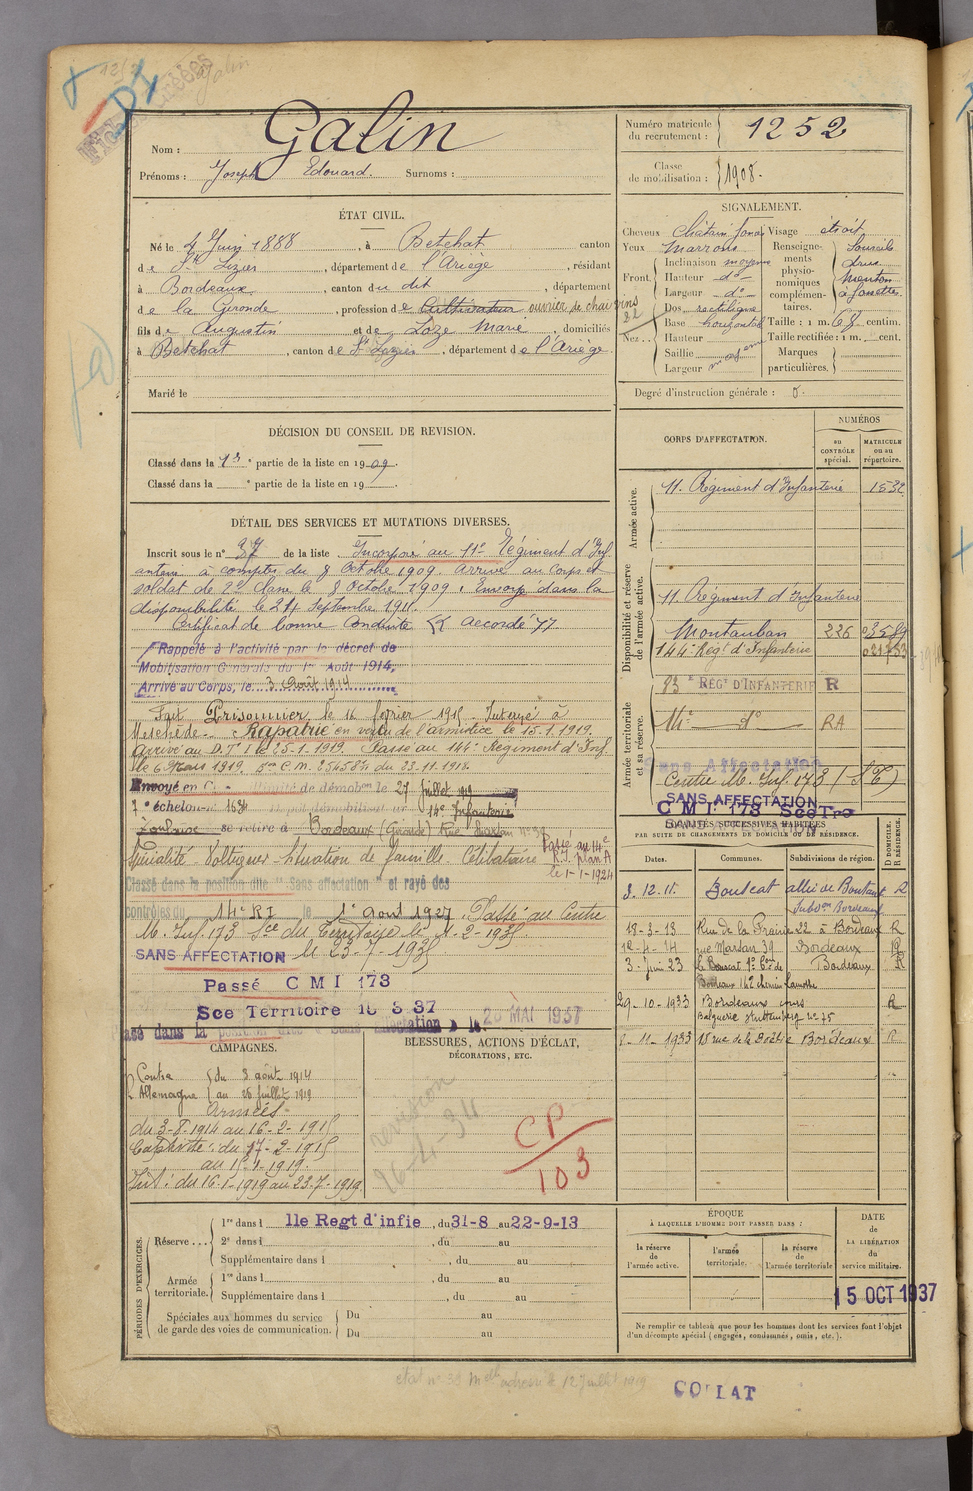 Galin
DI
Nom : Galin
Prénoms : Joseph Edouard. Surnoms :
ÉTAT CIVIL.
Né le 4 Juin 1888, à Betchat canton
de St Lizier, département de l'Ariège, résidant
à Bordeaux, canton du dit, département
de la Gironde, profession de Cultivateur ouvrier de chai
fils de Augustin et de Loze Marie, domiciliés
à Betchat, canton de St Lizier, département de l'Ariège
Marié le
DÉCISION DU CONSEIL DE REVISION.
Classé dans la 1re partie de la liste en 1909.
Classé dans la partie de la liste en 19
DÉTAIL DES SERVICES ET MUTATIONS DIVERSES.
Inscrit sous le n° de la liste Incorporé au 11e Régiment d'Inf
anterie à compter du 8 Octobre 1909 arrivé au corps et
soldat de 2e classe le 8 Octobre 1909. Envoyé dans la
disponibilité le 24 Septembre 1911.
Certificat de bonne Conduite Accordé
Rappelé à l'activité par le décret de
Mobilisation Générale du 1er Août 1914,
Arrivé au Corps, le 3 Août 1914
Fait Prisonnier le 16 février 1915. Interné à
Meschede. Rapatrié en vertu de l'armistice le 15.1.1919.
Arrivé au D.T.I le 25-1-1919. Passé au 144e Régiment d'Inf
le 6 Mars 1919. C.M. 254584 du 23.11.1918.
Envoyé en de démobon le 27 juillet 1919
7e échelon n° 163 14e Infanterie
Toulouse se retire à Bordeaux (Gironde) Rue Marsan n° 39
Spécialité Voltigeur Situation de famille Célibataire
Passé au 14e
R.I. plan A
le 1-1-1924
Classé dans la position dite "Sans affectation" et rayé des
contrôles du 14e RI le 1er Aout 1927 Passé au Centre
M. Inf. 173 Sce du Territoire le 1-2-1935
SANS AFFECTATION le 23-7-1935
Passé C M I 173
Sce Territoire 15 3 37
assé dans la position dite "Sans Affectation" le 20 MAI 1937
CAMPAGNES.
Contre du 3 août 1914
Allemagne au 26 juillet 1919
Armées
du 3-8-1914 au 16-2-1915
Captivité : du 17-2-1915
au 15-1-1919
Int : du 16-1-1919 au 23-7-1919
BLESSURES, ACTIONS D'ÉCLAT,
DÉCORATIONS, ETC.
revision
26-4-34
CP
103
PÉRIODES D'EXERCICES.
Réserve ... 1re dans l 11e Regt d'infie, du 31-8 au 22-9-13
2e dans l, du au
Supplémentaire dans l, du au
Armée territoriale. 1re dans l, du au
Supplémentaire dans l, du au
Spéciales aux hommes du service
de garde des voies de communication.
Du au
Du au
Numéro matricule
du recrutement : 1252
Classe
de mobilisation : 1908.
SIGNALEMENT.
Cheveux Châtain foncé Visage étroit
Yeux Marrons
Front Inclinaison moyenne
Hauteur do
Largeur do
Nez Dos rectiligne
Base horizontal
Hauteur
Saillie moyenne
Largeur
Renseignements physionomiques complémentaires.
Sourcils
drus
Menton
à fossette.
Taille : 1 m. 68 centim.
Taille rectifiée : 1 m. cent.
Marques
particulières.
Degré d'instruction générale :
CORPS D'AFFECTATION.
NUMÉROS
au CONTRÔLE spécial.
MATRICULE ou au répertoire.
Armée active.
11. Régiment d'Infanterie 1532
Disponibilité et réserve
de l'armée active.
11. Régiment d'Infanterie
Montauban 226 03589
144e Regt d'Infanterie
Armée territoriale
et sa réserve.
83e RÉGt D'INFANTERIE R
14e do RA
Sans Affectation
Centre M. Inf. 173 (ST)
SANS AFFECTATION
C M I 173 Sce Tre
SANS AFFECTATION
LOCALITÉS SUCCESSIVES HABITÉES
PAR SUITE DE CHANGEMENTS DE DOMICILE OU DE RÉSIDENCE.
D DOMICILE.
R RÉSIDENCE.
Dates. Communes. Subdivisions de région.
3.12.11. Bouscat allée de Boutaut R
Subdon Bordeaux
19-3-13 Rue de la Prairie 22 à Bordeaux R
12-4-14 rue Marsan 39 Bordeaux R
3-Juin 23 Le Bouscat Bordeaux R
Bordeaux 162 chemin Lamothe
29-10-1933 Bordeaux cours R
Balguerie Stuttenberg n° 75
-11-1933 15 rue de la Boétie Bordeaux R
ÉPOQUE
À LAQUELLE L'HOMME DOIT PASSER DANS :
la réserve de l'armée active.
l'armée territoriale.
la réserve de l'armée territoriale
DATE
de
LA LIBÉRATION
du
service militaire.
15 OCT 1937
Ne remplir ce tableau que pour les hommes dont les services font l'objet
d'un décompte spécial (engagés, condamnés, omis, etc.).
COLLAT